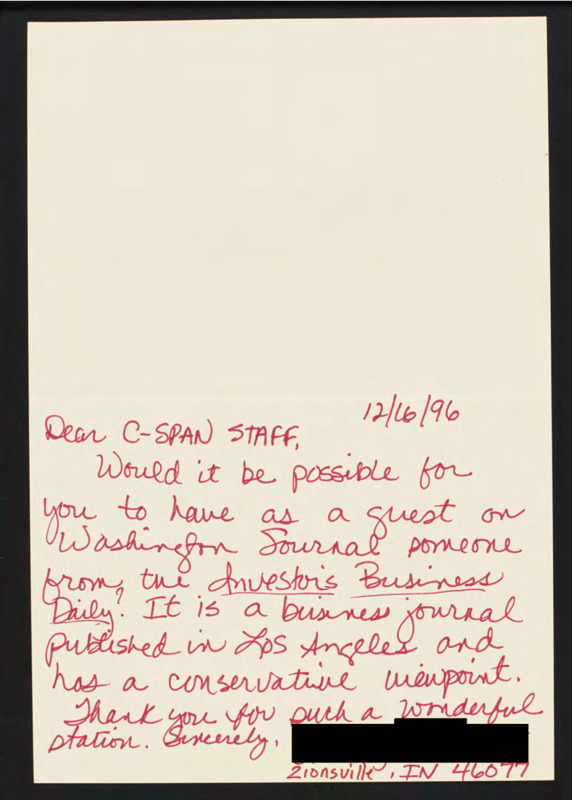 12/16/96
Dear C-SPAN STAFF,
Would it be possible for
you to have as a guest on
Washington Journal someone
from, the Investor's Business
Daily? It is a business journal
published in Los Angeles and
has a conservative viewpoint.
Thank you for such a wonderful
station. Sincerely,
Zionsville, IN 46077